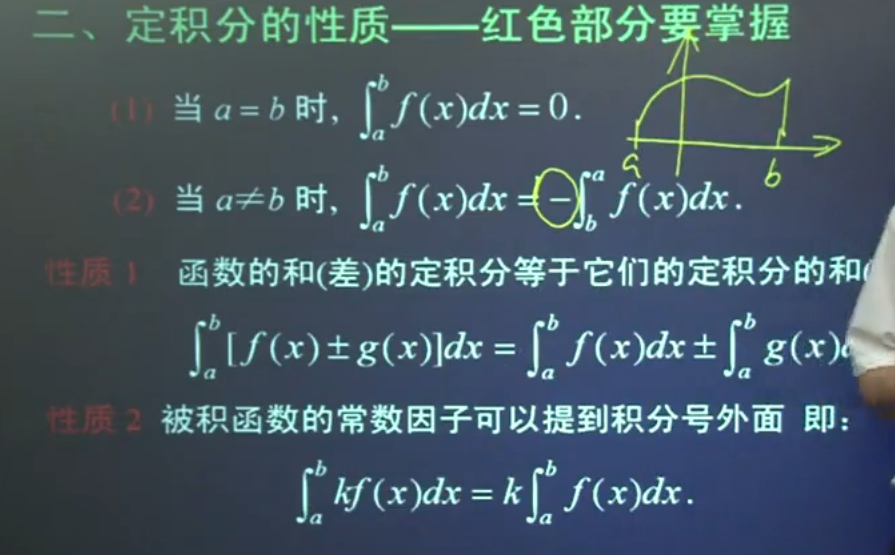 二、定积分的性质——红色部分要掌握
(1) 当 a = b 时, ∫_a^b f(x)dx = 0.
(2) 当 a≠b 时, ∫_a^b f(x)dx = -∫_b^a f(x)dx.
a b
性质 1 函数的和(差)的定积分等于它们的定积分的和(
∫_a^b [f(x)±g(x)]dx = ∫_a^b f(x)dx ± ∫_a^b g(x)
性质 2 被积函数的常数因子可以提到积分号外面 即:
∫_a^b kf(x)dx = k∫_a^b f(x)dx.